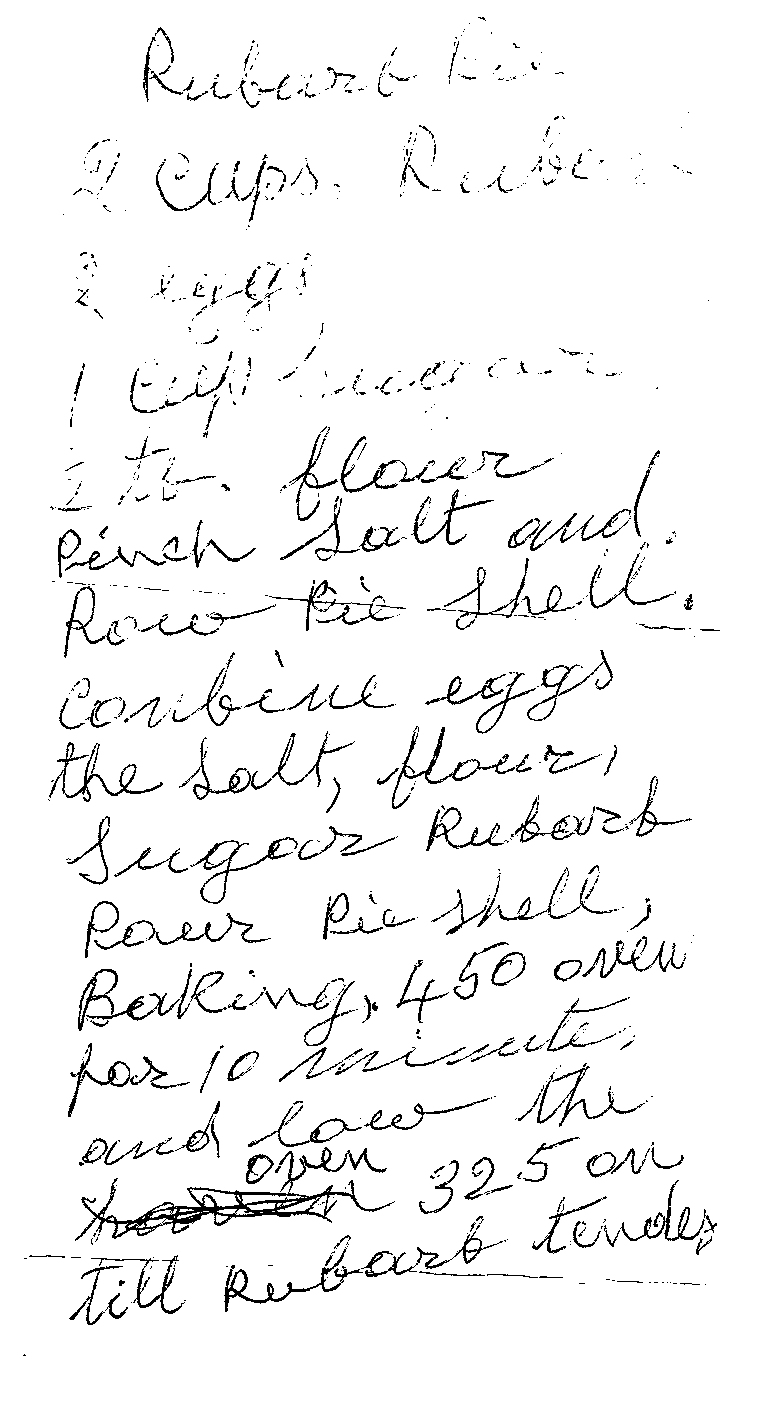 Rubarb Pie
2 cups. Rubarb
2 eggs
1 cup sugar
2 tb. flour
Pinch salt and.
Row Pie shell.
Conbine eggs
the salt, flour,
Sugar Rubarb
Pour Pie shell,
Baking, 450 oven
for 10 minute,
and low the
oven
325 on
till Rubarb tender